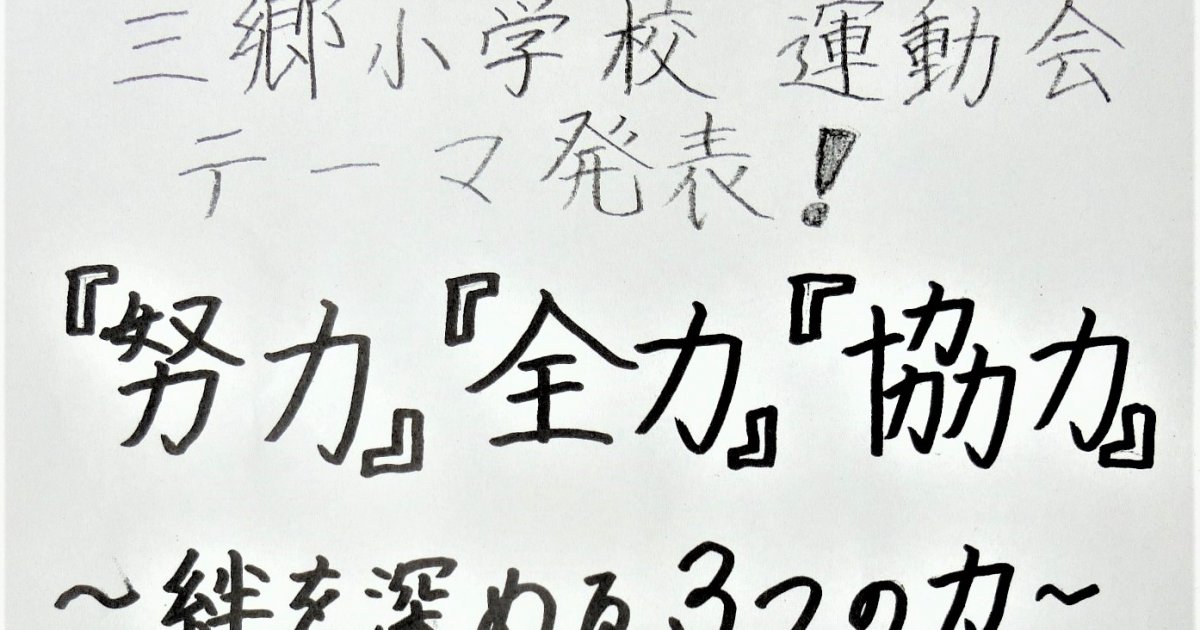 三郷小学校 運動会
テーマ発表!
『努力』『全力』『協力』
～絆を深める3つの力～